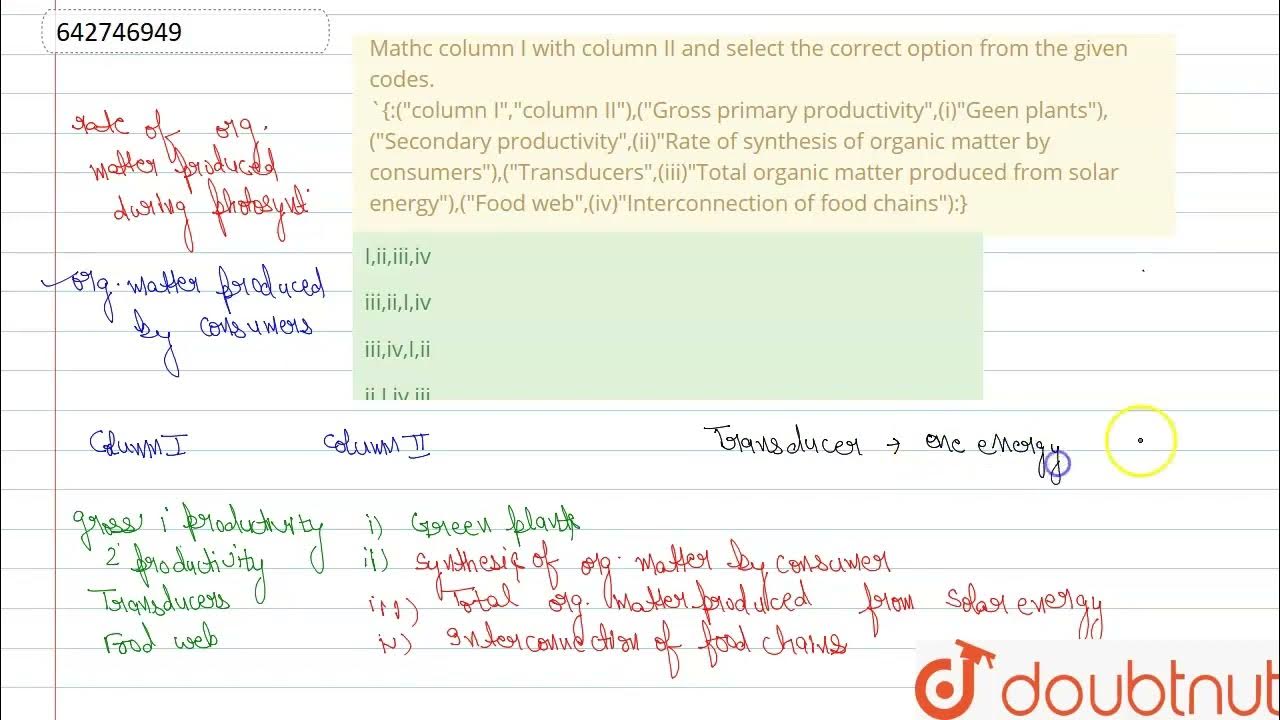 642746949
Mathc column I with column II and select the correct option from the given
codes.
`{:("column I","column II"),("Gross primary productivity",(i)"Geen plants"),
("Secondary productivity",(ii)"Rate of synthesis of organic matter by
consumers"),("Transducers",(iii)"Total organic matter produced from solar
energy"),("Food web",(iv)"Interconnection of food chains"):}
rate of org.
matter produced
during photosynt
I,ii,iii,iv
iii,ii,I,iv
iii,iv,I,ii
ii,I,iv,iii
org. matter produced
by consumers
Column I column II Transducer → one energy
gross i productivity i) Green plants
2° productivity ii) synthesis of org. matter by consumer
Transducers iii) Total org. matter produced from solar energy
Food web iv) Interconnection of food chains
doubtnut